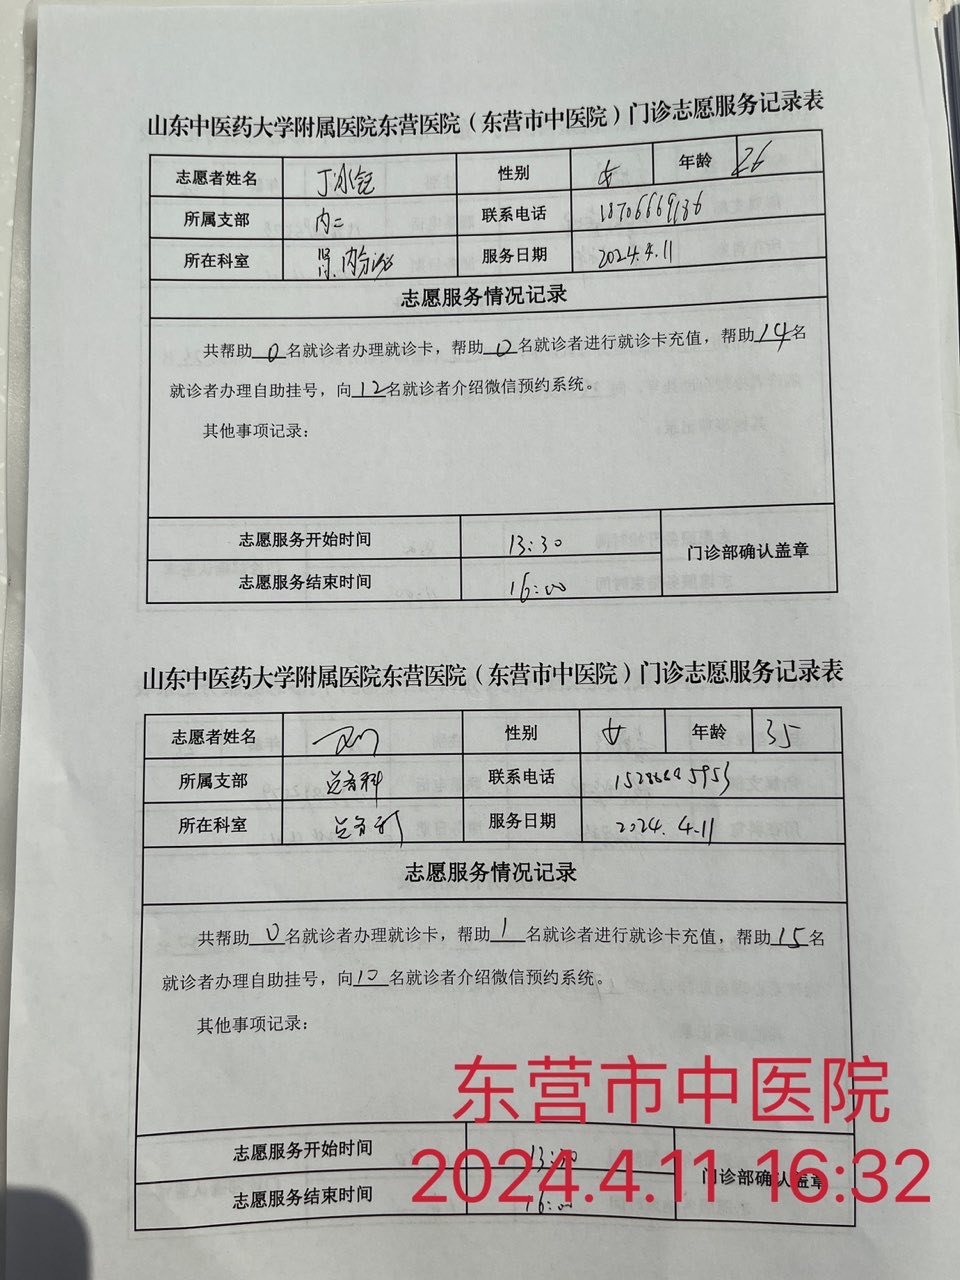 山东中医药大学附属医院东营医院（东营市中医院）门诊志愿服务记录表
志愿者姓名 丁冰钰 性别 女 年龄 26
所属支部 内二 联系电话 18706669186
所在科室 肾内分泌 服务日期 2024.4.11
志愿服务情况记录
共帮助0名就诊者办理就诊卡，帮助0名就诊者进行就诊卡充值，帮助14名
就诊者办理自助挂号，向12名就诊者介绍微信预约系统。
其他事项记录：
志愿服务开始时间 13:30 门诊部确认盖章
志愿服务结束时间 16:00
山东中医药大学附属医院东营医院（东营市中医院）门诊志愿服务记录表
志愿者姓名 性别 女 年龄 35
所属支部 总务科 联系电话
所在科室 总务科 服务日期 2024.4.11
志愿服务情况记录
共帮助0名就诊者办理就诊卡，帮助1名就诊者进行就诊卡充值，帮助15名
就诊者办理自助挂号，向10名就诊者介绍微信预约系统。
其他事项记录：
东营市中医院
志愿服务开始时间 13:30 门诊部确认盖章
2024.4.11 16:32
志愿服务结束时间 16:00